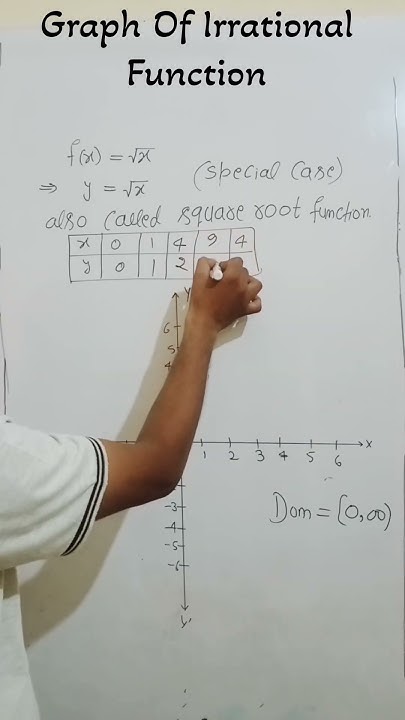 Graph Of Irrational
Function
f(x) = √x
⇒ y = √x (special case)
also called square root function.
x 0 1 4 9 4
y 0 1 2
y
6
5
4
1 2 3 4 5 6 x
Dom = [0,∞)
-3
-4
-5
-6
y'